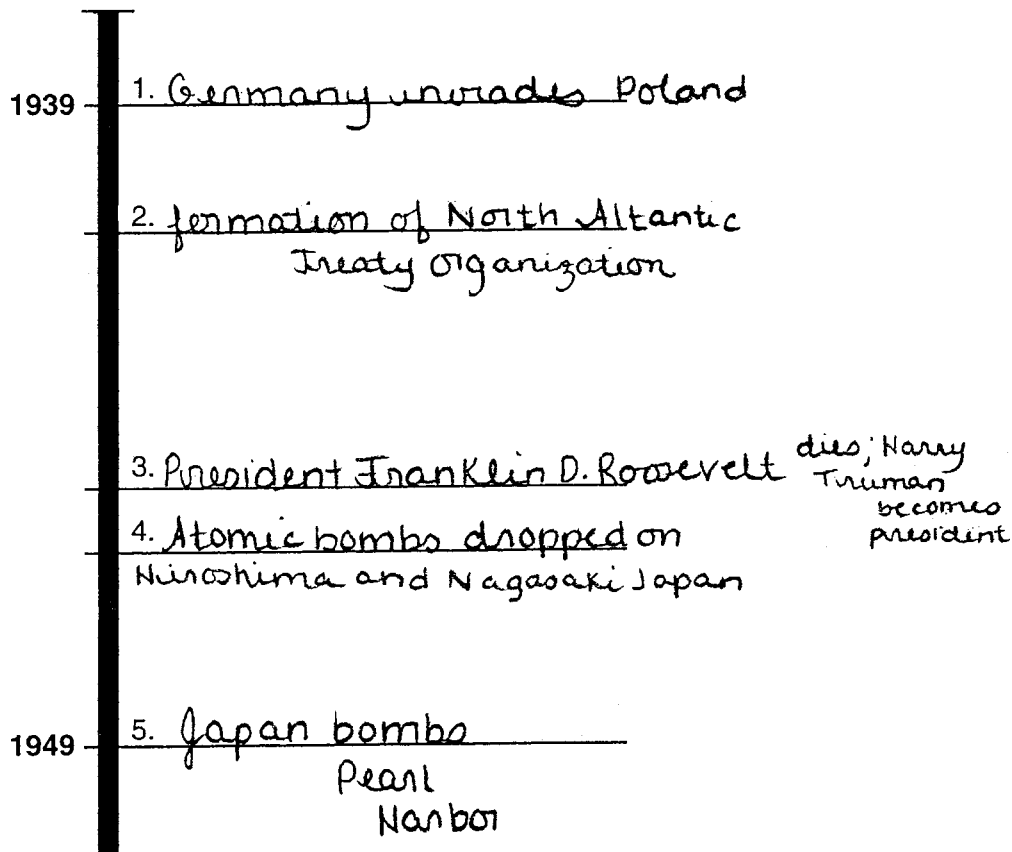 1939
1. Germany invades Poland
2. formation of North Altantic
Treaty Organization
3. President Franklin D. Roosevelt dies; Harry
Truman
becomes
president
4. Atomic bombs dropped on
Hiroshima and Nagasaki Japan
1949
5. Japan bombs
Pearl
Harbor